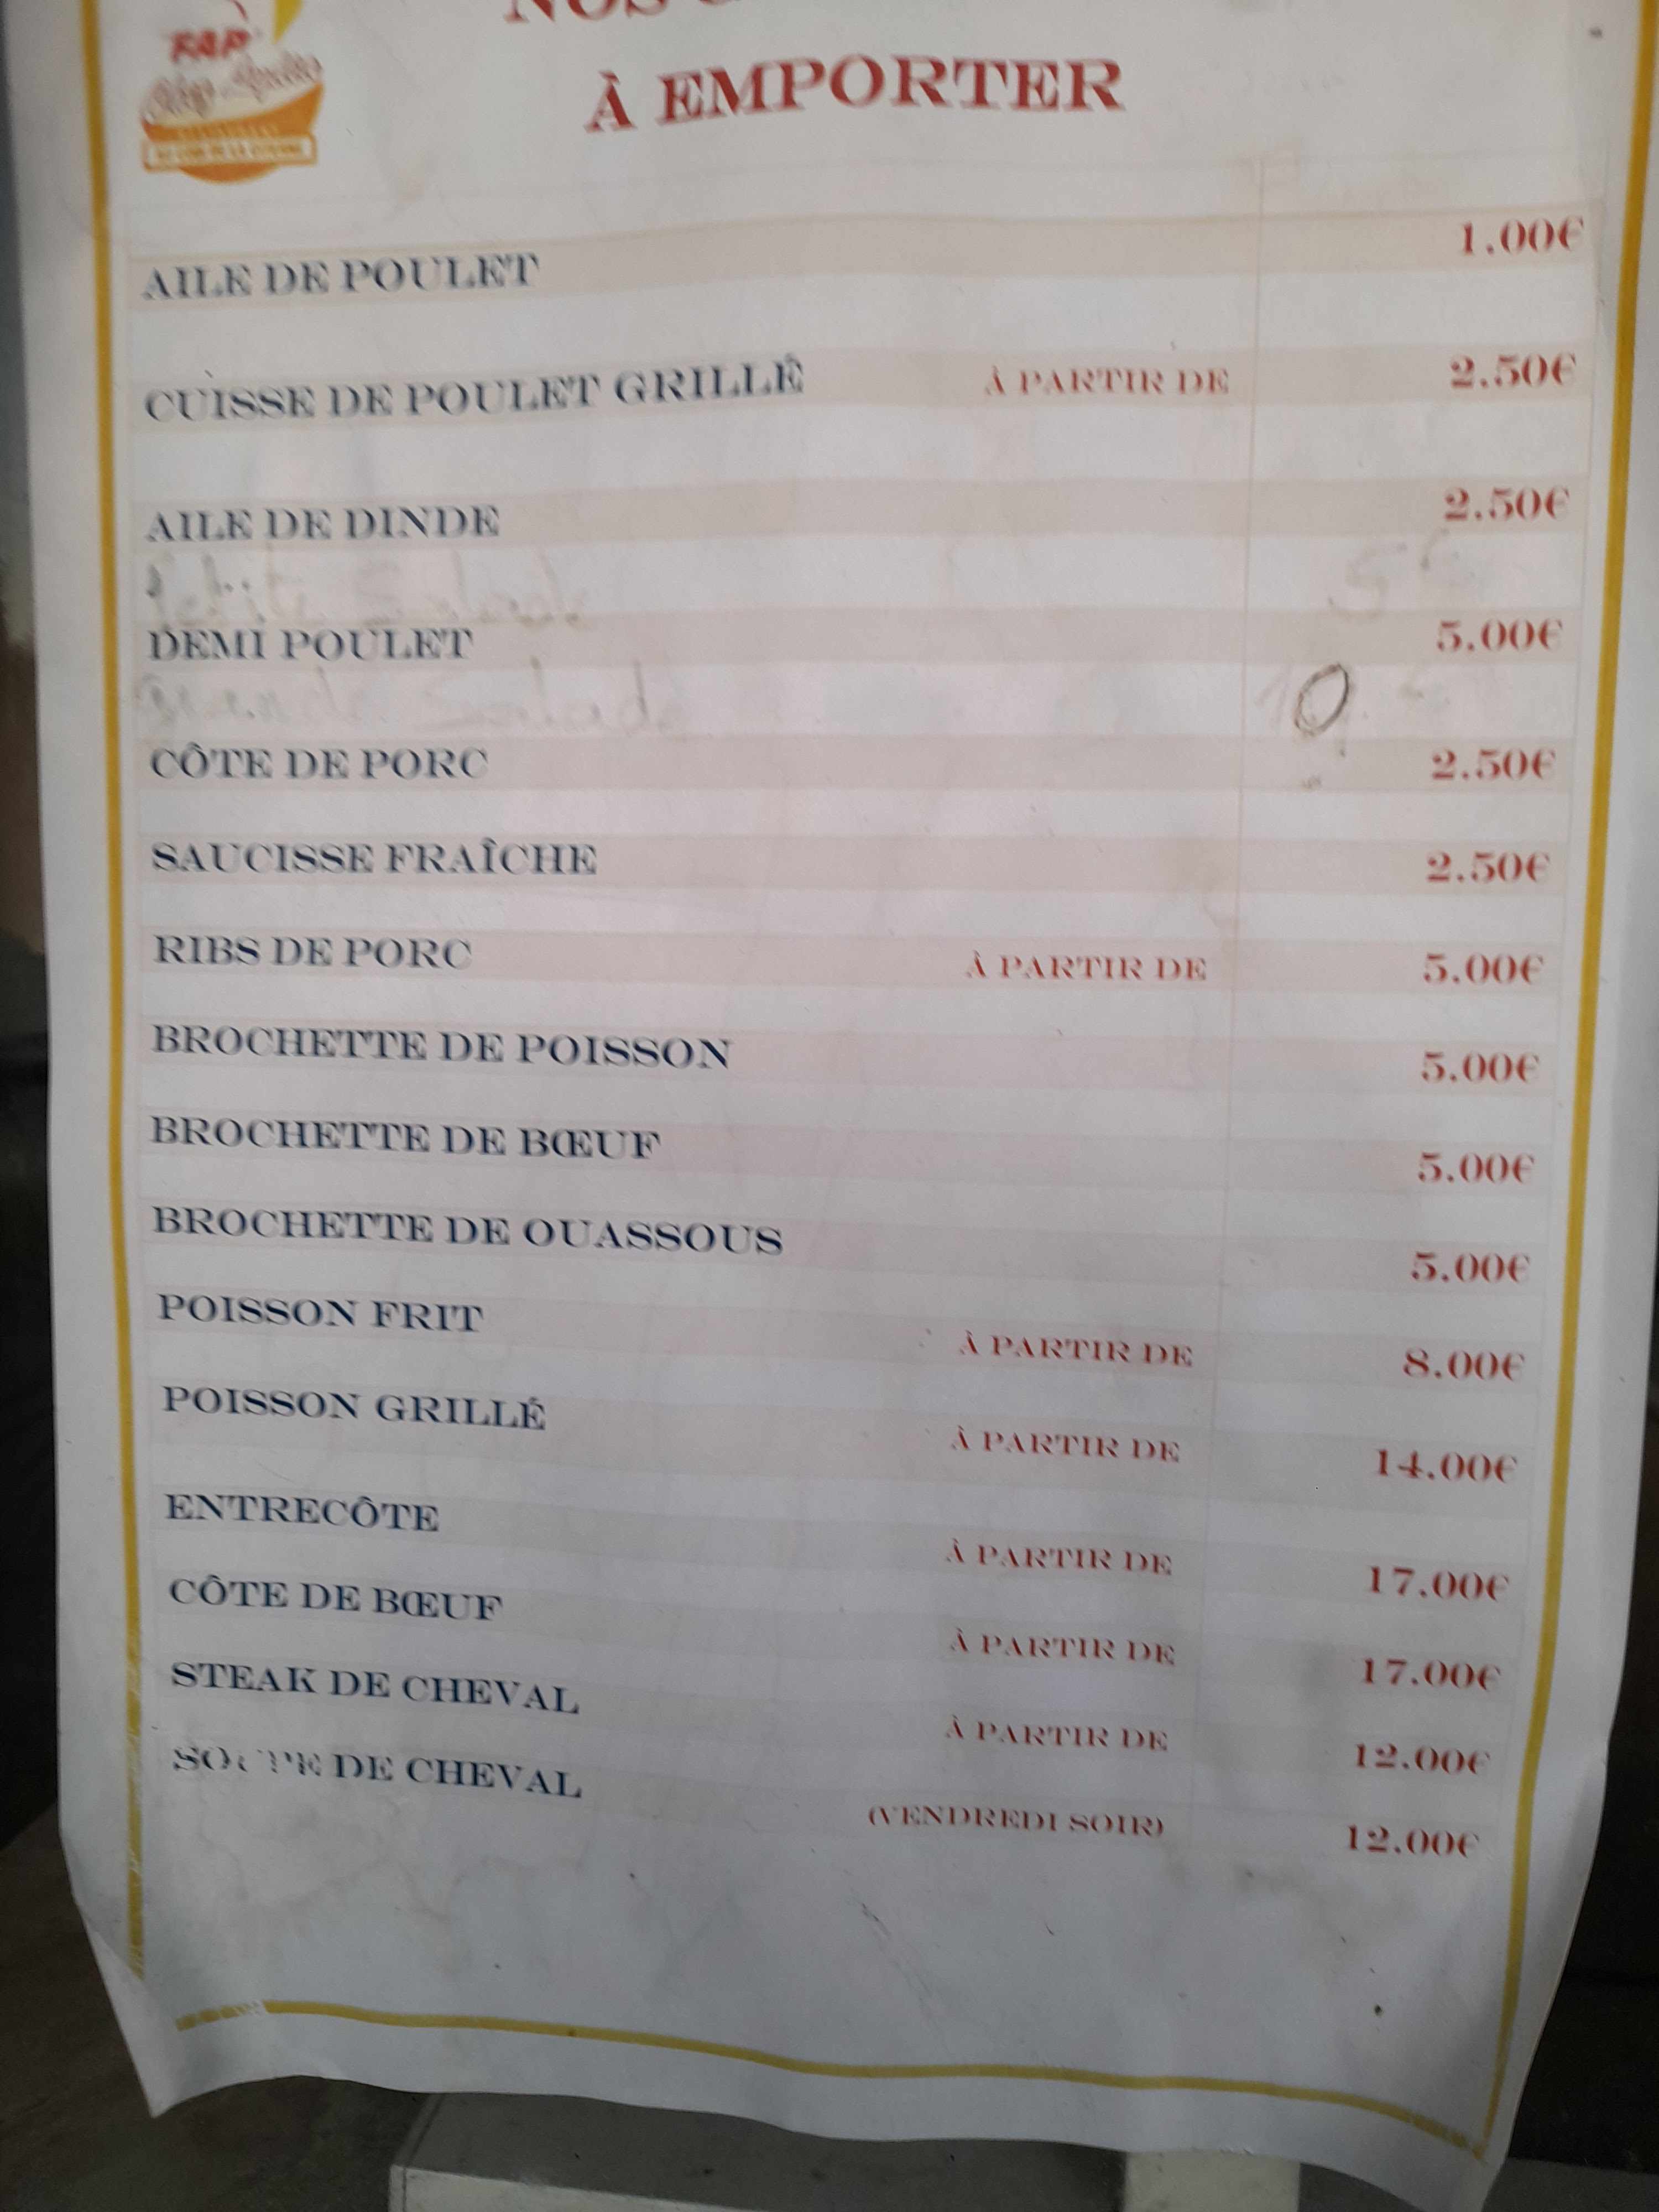 FAP
NOS
À EMPORTER
AILE DE POULET 1.00€
CUISSE DE POULET GRILLÉ À PARTIR DE 2.50€
AILE DE DINDE 2.50€
Petite Salade 5€
DEMI POULET 5.00€
Grande Salade 10 €
CÔTE DE PORC 2.50€
SAUCISSE FRAÎCHE 2.50€
RIBS DE PORC À PARTIR DE 5.00€
BROCHETTE DE POISSON 5.00€
BROCHETTE DE BŒUF 5.00€
BROCHETTE DE OUASSOUS 5.00€
POISSON FRIT À PARTIR DE 8.00€
POISSON GRILLÉ À PARTIR DE 14.00€
ENTRECÔTE À PARTIR DE 17.00€
CÔTE DE BŒUF À PARTIR DE 17.00€
STEAK DE CHEVAL À PARTIR DE 12.00€
SOUPE DE CHEVAL (VENDREDI SOIR) 12.00€